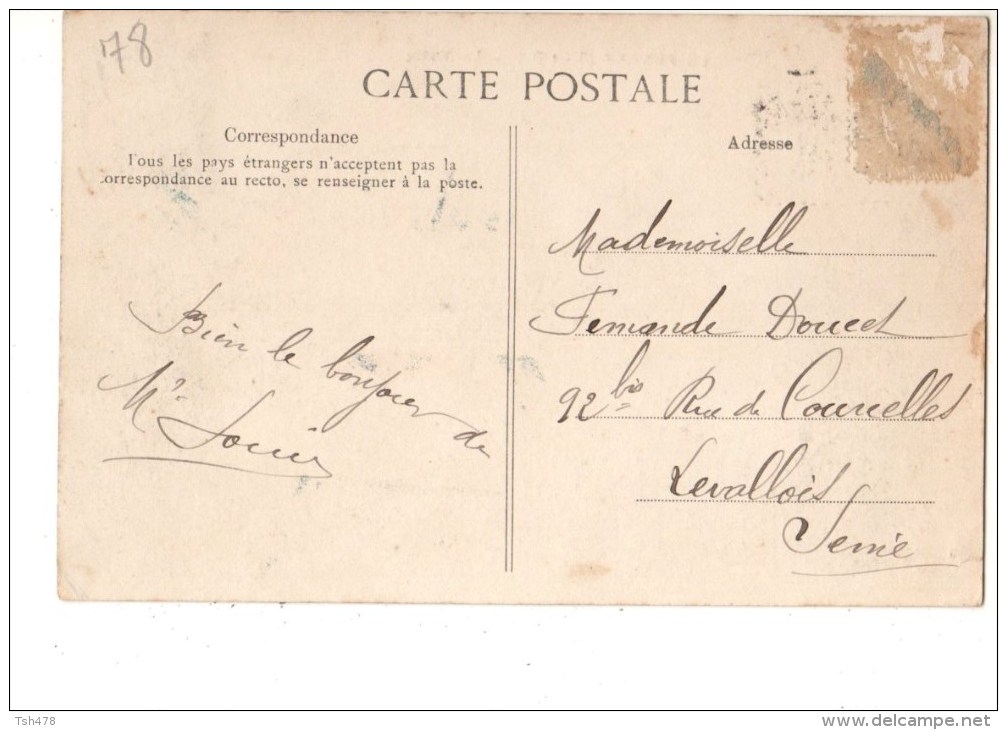 78
CARTE POSTALE
Correspondance
Tous les pays étrangers n'acceptent pas la
correspondance au recto, se renseigner à la poste.
Adresse
Bien le bonjour de
Mr Louis
Mademoiselle
Fernande Doucet
92 bis Rue de Courcelles
Levallois
Seine
Tsh478
www.delcampe.net